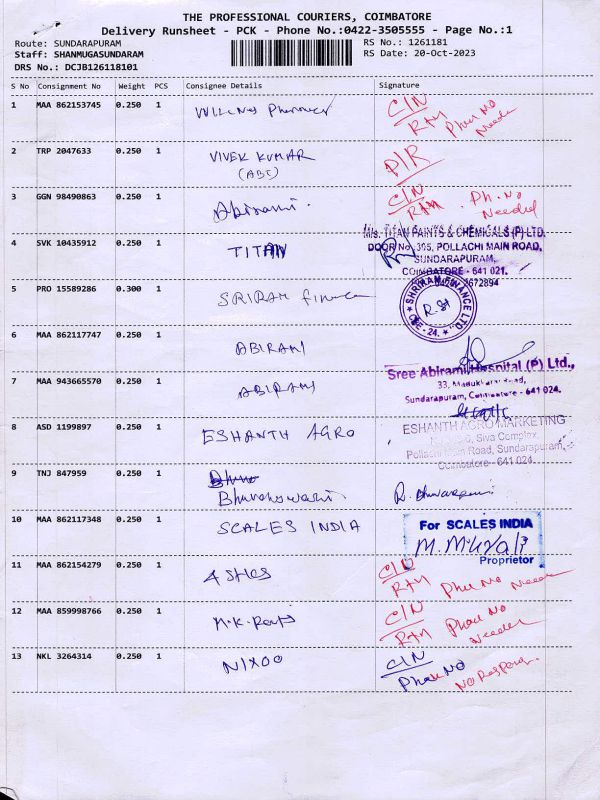 THE PROFESSIONAL COURIERS, COIMBATORE
Delivery Runsheet - PCK - Phone No.:0422-3505555 - Page No.:1
Route: SUNDARAPURAM RS No.: 1261181
Staff: SHANMUGASUNDARAM RS Date: 20-Oct-2023
DRS No.: DCJB126118101
S No Consignment No Weight PCS Consignee Details Signature
1 MAA 862153745 0.250 1 C/N
RTM Phone No
2 TRP 2047633 0.250 1 VIVEK KUMAR D/R
(ABT)
3 GGN 98490863 0.250 1 Abirami. C/N Ph. No
RTM Needed
M/s. TITAN PAINTS & CHEMICALS (P) LTD.
4 SVK 10435912 0.250 1 TITAN DOOR No. 305, POLLACHI MAIN ROAD,
SUNDARAPURAM,
COIMBATORE - 641 021.
2672894
5 PRO 15589286 0.300 1 SRIRAM finance SHRIRAM FINANCE LTD
CBE - 24.
6 MAA 862117747 0.250 1 ABIRAMI
Sree Abirami Hospital (P) Ltd.,
7 MAA 943665570 0.250 1 ABIRAMI 33, Madukkarai Road,
Sundarapuram, Coimbatore - 641 024.
8 ASD 1199897 0.250 1 ESHANTH AGRO ESHANTH AGRO MARKETING
Siva Complex,
Pollachi Main Road, Sundarapuram,
Coimbatore - 641 024.
9 TNJ 847959 0.250 1
Bhuvaneshwari
10 MAA 862117348 0.250 1 SCALES INDIA For SCALES INDIA
M. Murali
Proprietor
11 MAA 862154279 0.250 1 C/N
RTM Phone No Needed
12 MAA 859998766 0.250 1 C/N
RTM Phone No
Needed
13 NKL 3264314 0.250 1 NIXOO C/N
Phone No
No Response.